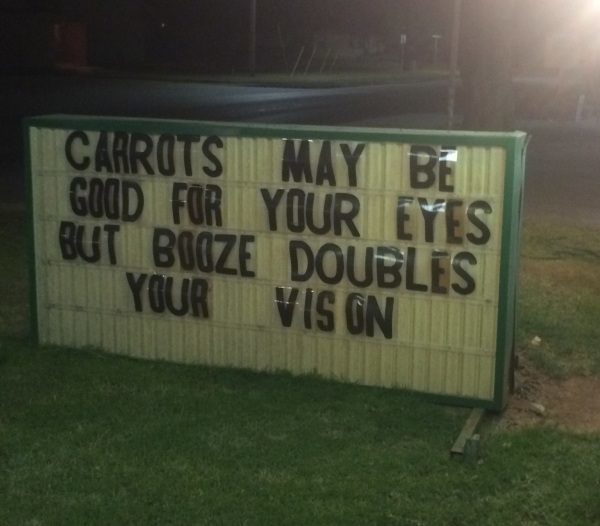 CARROTS MAY BE
GOOD FOR YOUR EYES
BUT BOOZE DOUBLES
YOUR VIS ON